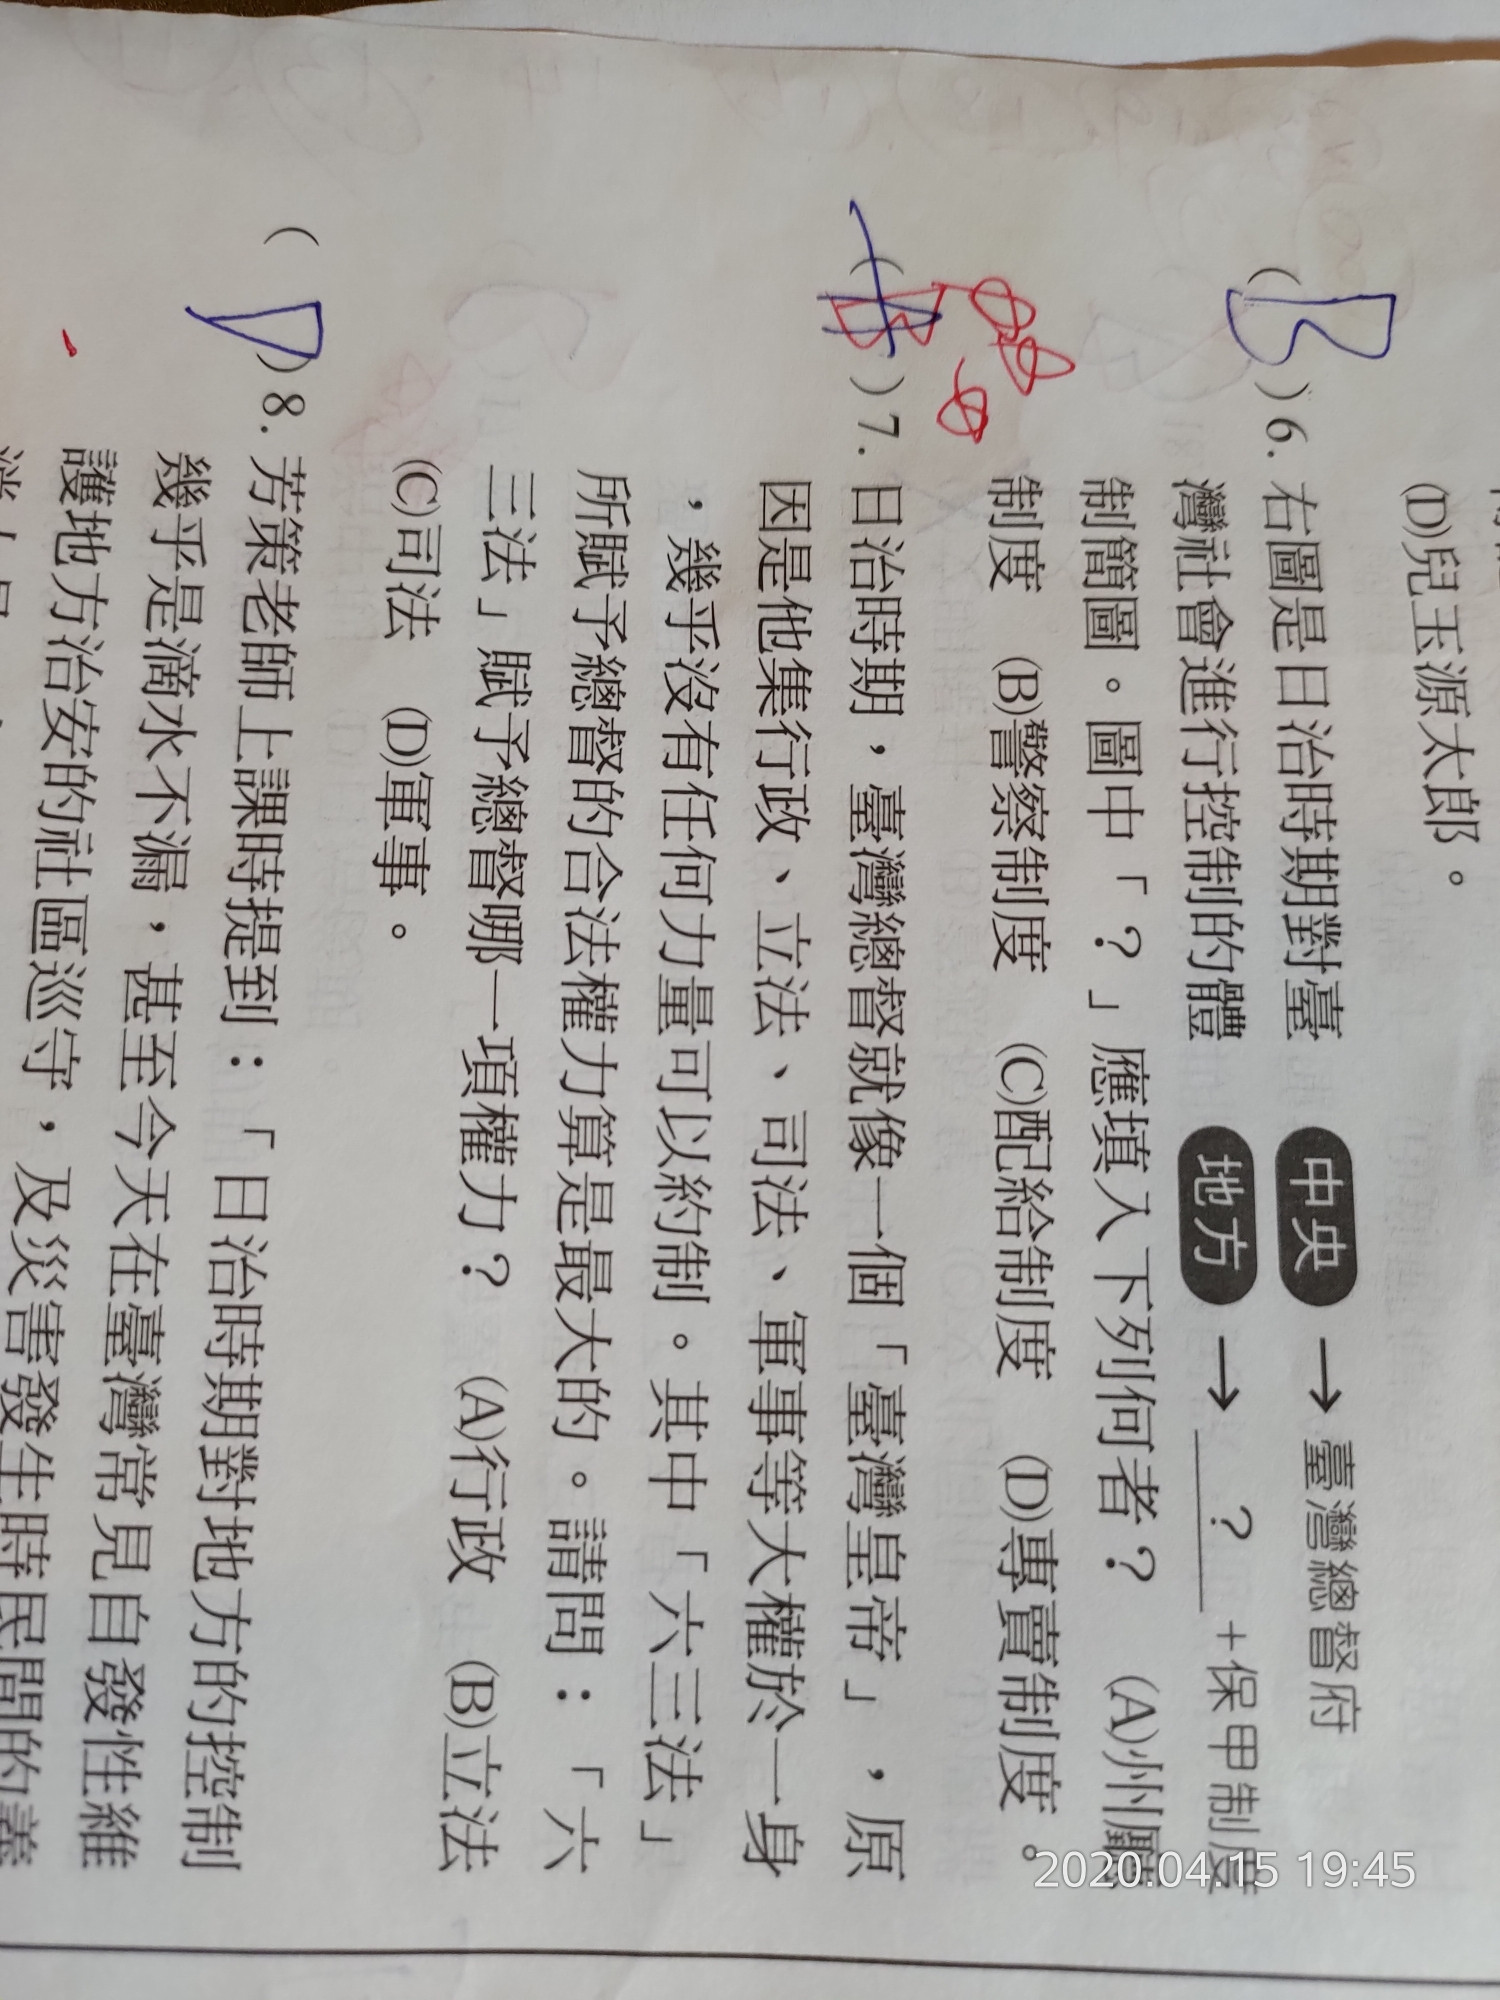 (D)兒玉源太郎。
(B)6. 右圖是日治時期對臺
灣社會進行控制的體
制簡圖。圖中「?」應填入下列何者? (A)州廳
制度 (B)警察制度 (C)配給制度 (D)專賣制度。
中央 → 臺灣總督府
地方 → ? +保甲制度
(B)7. 日治時期,臺灣總督就像一個「臺灣皇帝」,原
因是他集行政、立法、司法、軍事等大權於一身
,幾乎沒有任何力量可以約制。其中「六三法」
所賦予總督的合法權力算是最大的。請問:「六
三法」賦予總督哪一項權力? (A)行政 (B)立法
(C)司法 (D)軍事。
(D)8. 芳策老師上課時提到:「日治時期對地方的控制
幾乎是滴水不漏,甚至今天在臺灣常見自發性維
護地方治安的社區巡守,及災害發生時民間的義
2020.04.15 19:45